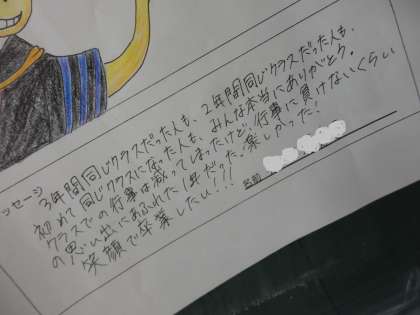 ッセージ
3年間同じクラスだった人も、2年間同じクラスだった人も、
初めて同じクラスになった人も、みんな本当にありがとう。
クラスでの行事は減ってしまったけど、行事に負けないくらい
の思い出にあふれた1年だった。楽しかった!
笑顔で卒業したい!!!
名前